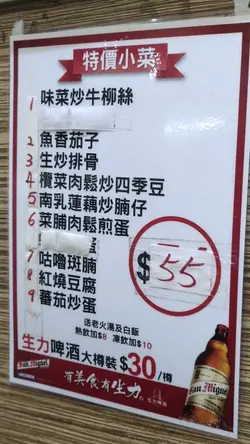 特價小菜
1 味菜炒牛柳絲
2 魚香茄子
3 生炒排骨
4 欖菜肉鬆炒四季豆
5 南乳蓮藕炒腩仔
6 菜脯肉鬆煎蛋
7 咕嚕斑腩
8 紅燒豆腐
9 蕃茄炒蛋
$55
送老火湯及白飯
熱飲加$8 凍飲加$10
生力啤酒大樽裝$30/樽
San Miguel
有美食有生力
San Miguel